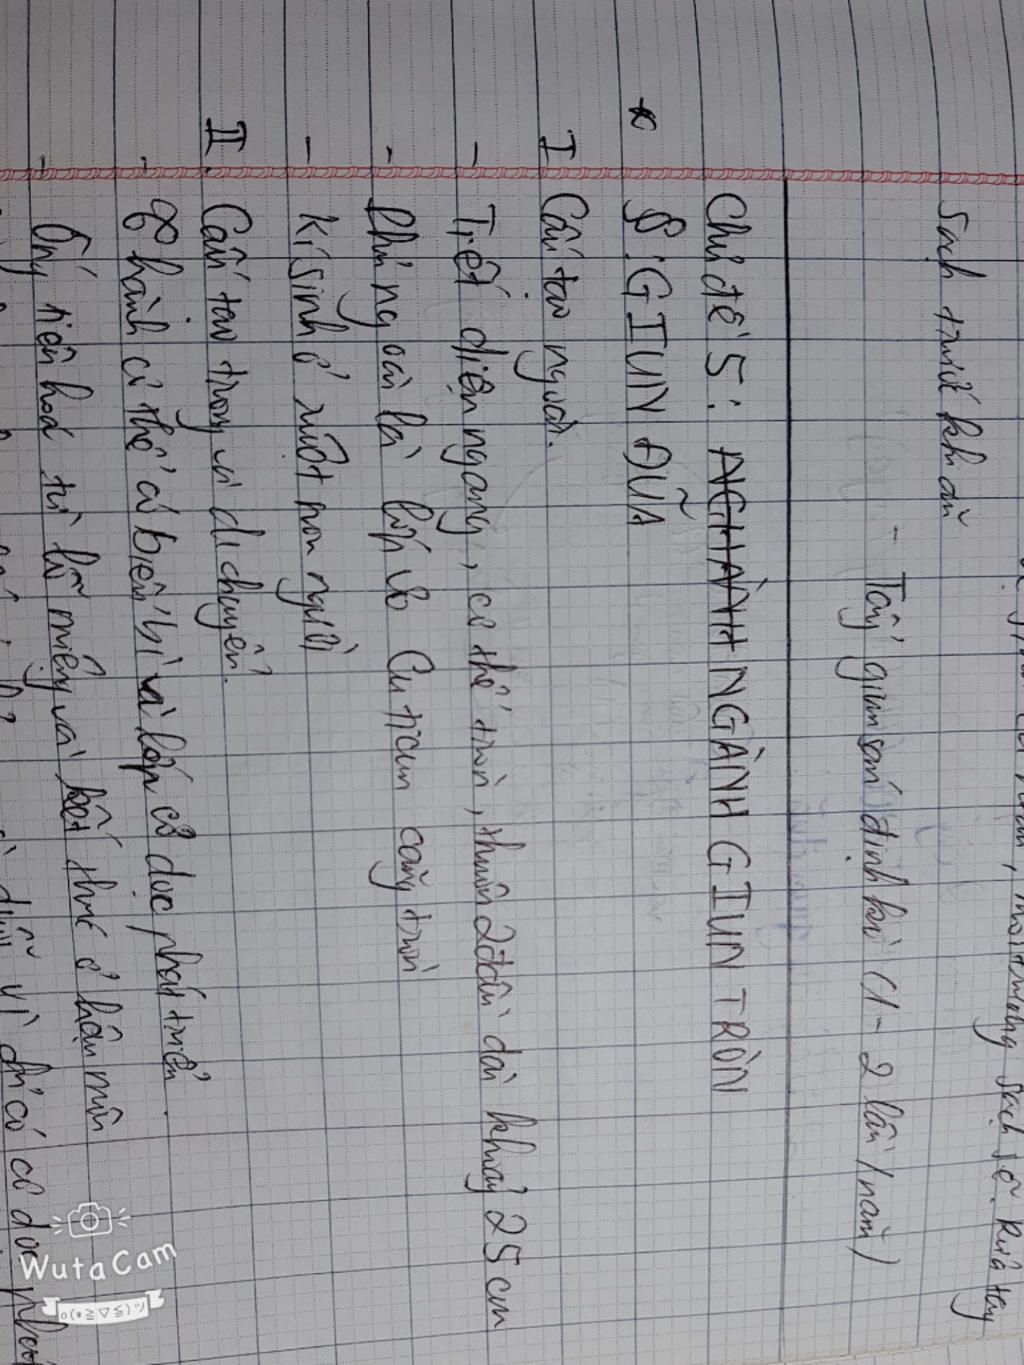 môi trường sạch sẽ. Rửa tay
sạch trước khi ăn
- Tẩy giun sán định kì (1-2 lần/năm)
Chủ đề 5: NGÀNH GIUN TRÒN
* §: GIUN ĐŨA
I Cấu tạo ngoài.
- Tiết diện ngang, cơ thể tròn, thuôn 2 đầu dài khoảg 25 cm
- Phía ngoài là lớp vỏ Cuticun căng tròn
- Kí sinh ở ruột non người
II. Cấu tạo trong và di chuyển.
- Thành cơ thể có biểu bì và lớp cơ dọc phát triển.
- Ống tiêu hoá từ lỗ miệng và kết thúc ở hậu môn
vì chỉ có cơ dọc phát
WutaCam
o(*≧▽≦)ツ